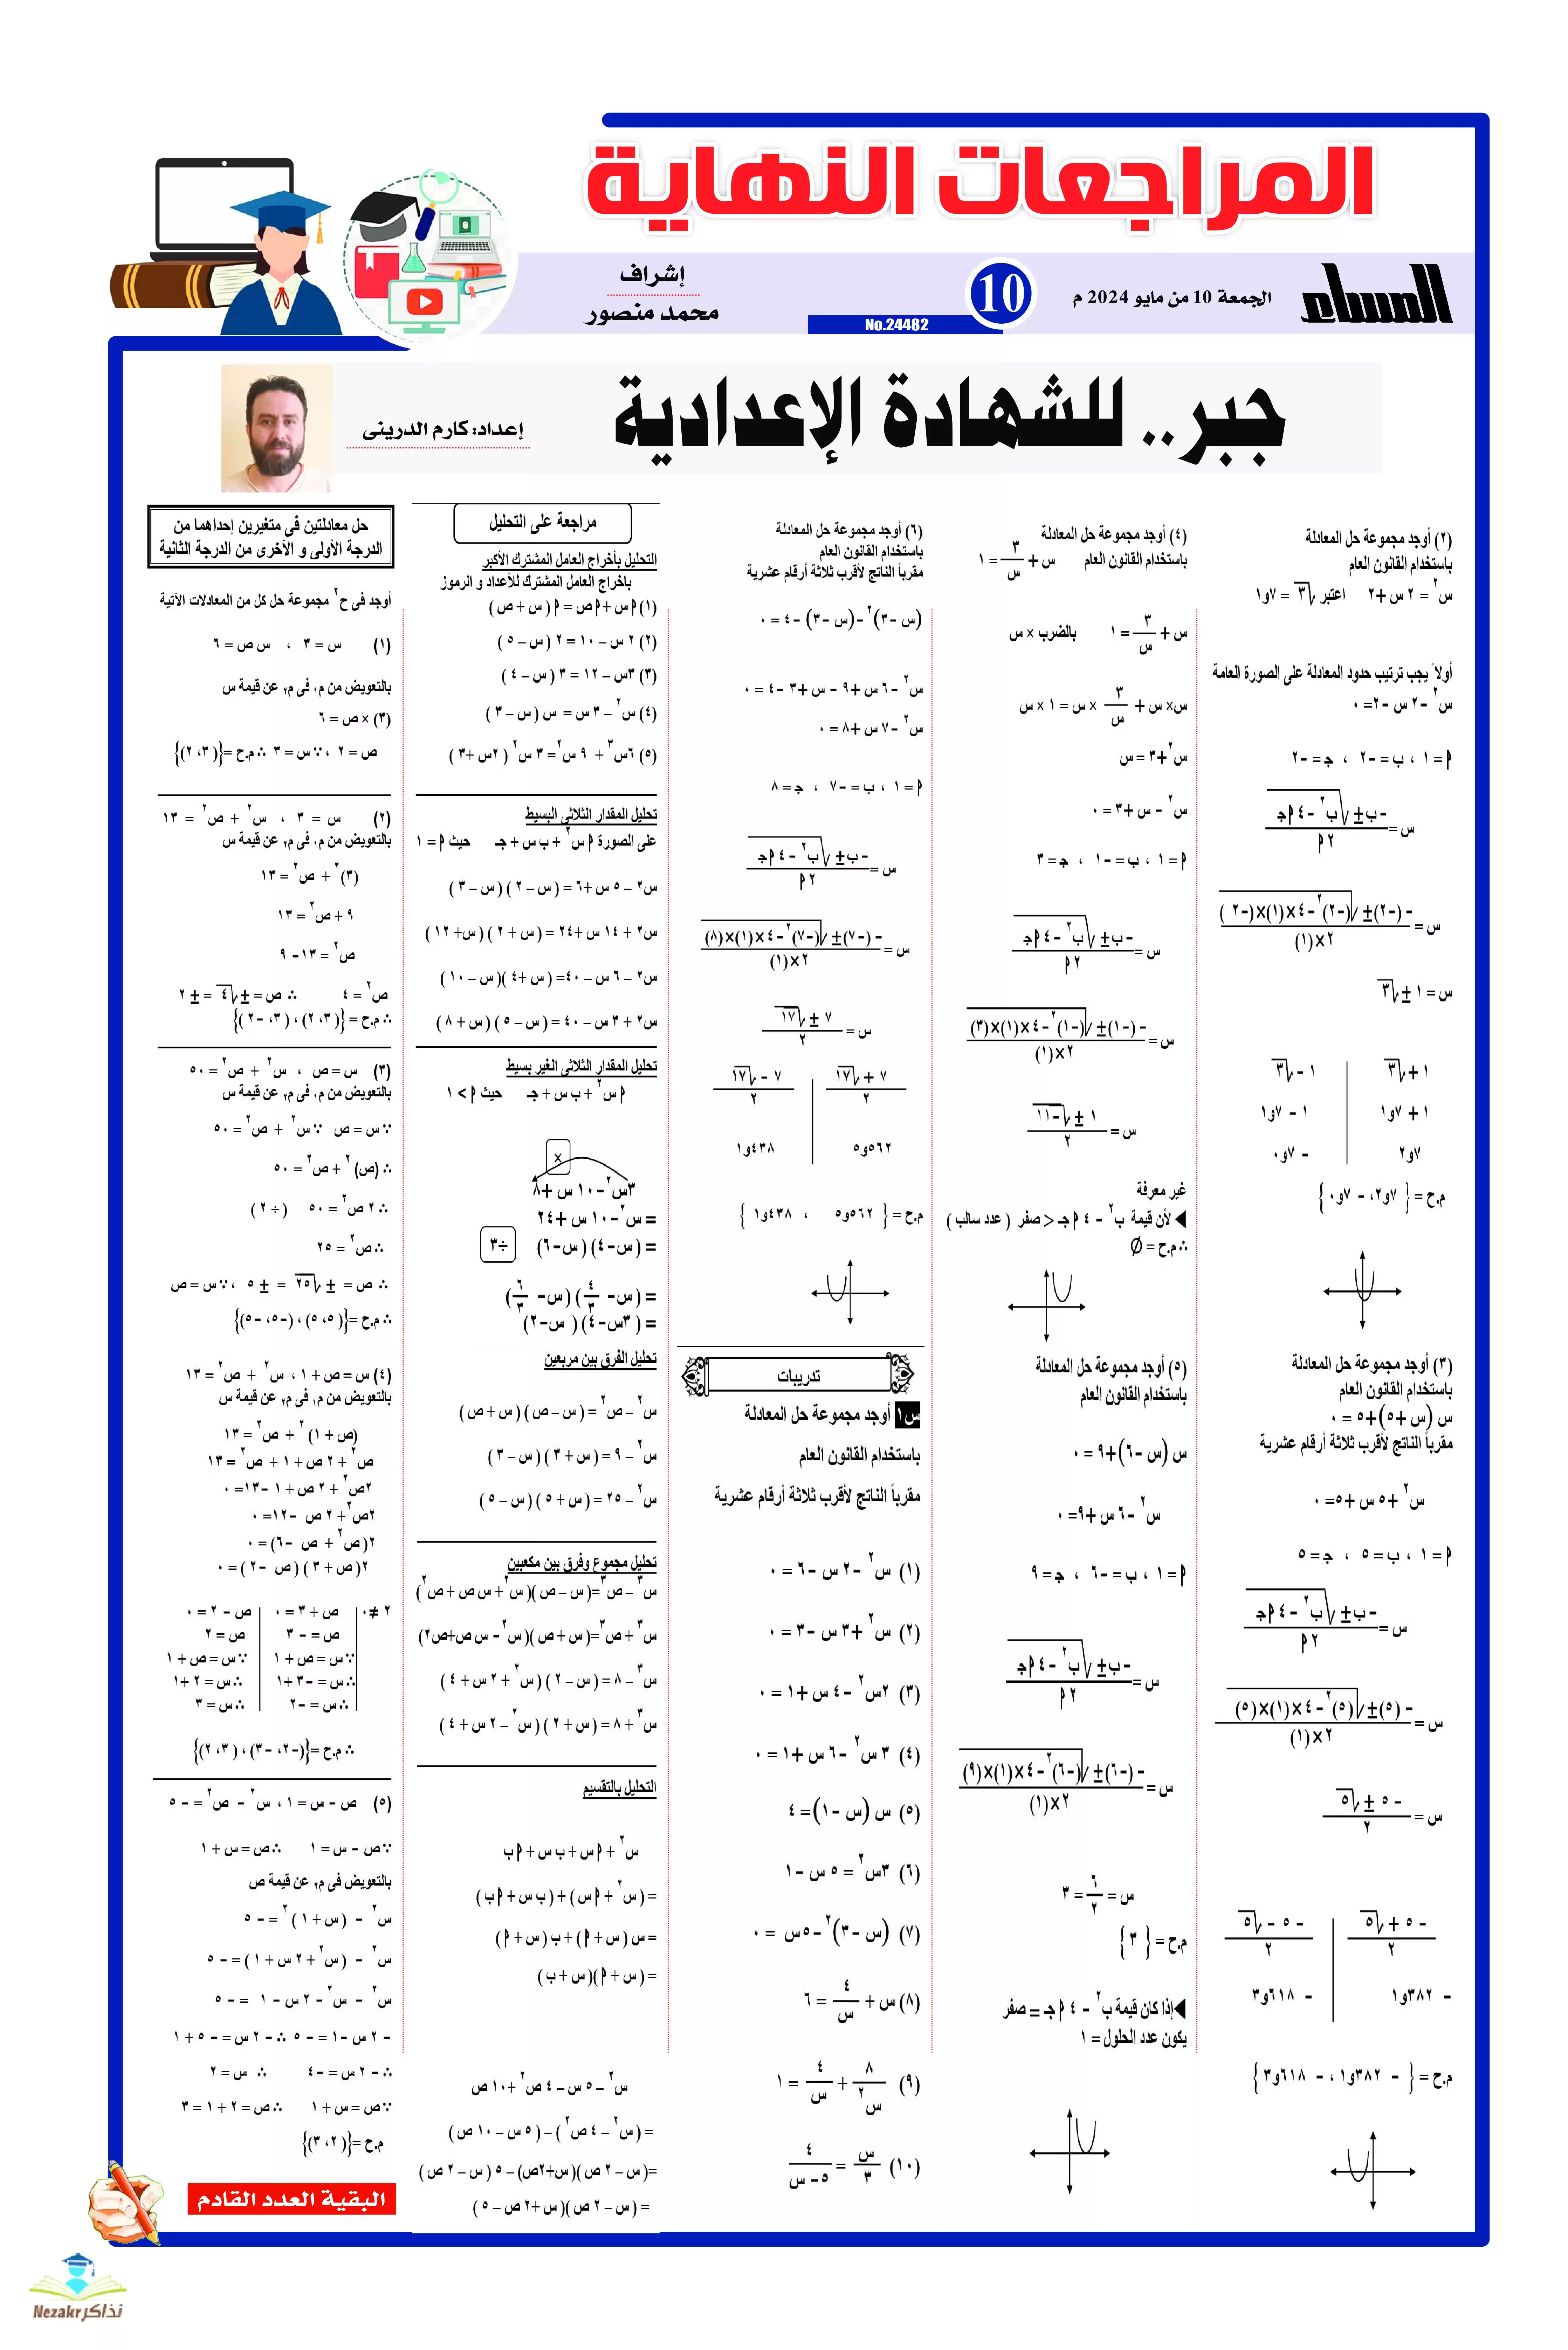 المراجعات النهاية
المساء
الجمعة 10 من مايو 2024 م
10
No.24482
إشراف
محمد منصور
جبر.. للشهادة الإعدادية
إعداد: كارم الدرينى
(٢) أوجد مجموعة حل المعادلة
باستخدام القانون العام
س² = ٢ س + ٢ اعتبر √٣ = ٧و١
أولاً يجب ترتيب حدود المعادلة على الصورة العامة
س² - ٢ س - ٢ = ٠
أ = ١ ، ب = -٢ ، جـ = -٢
س = (-ب ± √(ب² - ٤ أ جـ)) / ٢ أ
س = (-(-٢) ± √((-٢)² - ٤×(١)×(-٢))) / ٢×(١)
س = ١ ± √٣
١ + √٣ | ١ - √٣
١ + ٧و١ | ١ - ٧و١
٧و٢ | - ٧و٠
م.ح = { ٧و٢، - ٧و٠ }
(٣) أوجد مجموعة حل المعادلة
باستخدام القانون العام
س (س + ٥) + ٥ = ٠
مقرباً الناتج لأقرب ثلاثة أرقام عشرية
س² + ٥ س + ٥ = ٠
أ = ١ ، ب = ٥ ، جـ = ٥
س = (-ب ± √(ب² - ٤ أ جـ)) / ٢ أ
س = (-(٥) ± √((٥)² - ٤×(١)×(٥))) / ٢×(١)
س = (-٥ ± √٥) / ٢
(-٥ + √٥) / ٢ | (-٥ - √٥) / ٢
- ٣٨٢و١ | - ٦١٨و٣
م.ح = { - ٣٨٢و١ ، - ٦١٨و٣ }
(٤) أوجد مجموعة حل المعادلة
باستخدام القانون العام س + ٣/س = ١
س + ٣/س = ١ بالضرب × س
س× س + ٣/س × س = ١ × س
س² + ٣ = س
س² - س + ٣ = ٠
أ = ١ ، ب = -١ ، جـ = ٣
س = (-ب ± √(ب² - ٤ أ جـ)) / ٢ أ
س = (-(-١) ± √((-١)² - ٤×(١)×(٣))) / ٢×(١)
س = (١ ± √-١١) / ٢
غير معرفة
◀ لأن قيمة ب² - ٤ أ جـ < صفر ( عدد سالب )
∴ م.ح = Ø
(٥) أوجد مجموعة حل المعادلة
باستخدام القانون العام
س (س - ٦) + ٩ = ٠
س² - ٦ س + ٩ = ٠
أ = ١ ، ب = -٦ ، جـ = ٩
س = (-ب ± √(ب² - ٤ أ جـ)) / ٢ أ
س = (-(-٦) ± √((-٦)² - ٤×(١)×(٩))) / ٢×(١)
س = ٦/٢ = ٣
م.ح = { ٣ }
◀ إذا كان قيمة ب² - ٤ أ جـ = صفر
يكون عدد الحلول = ١
(٦) أوجد مجموعة حل المعادلة
باستخدام القانون العام
مقرباً الناتج لأقرب ثلاثة أرقام عشرية
(س - ٣)² - (س - ٣) - ٤ = ٠
س² - ٦ س + ٩ - س + ٣ - ٤ = ٠
س² - ٧ س + ٨ = ٠
أ = ١ ، ب = -٧ ، جـ = ٨
س = (-ب ± √(ب² - ٤ أ جـ)) / ٢ أ
س = (-(-٧) ± √((-٧)² - ٤×(١)×(٨))) / ٢×(١)
س = (٧ ± √١٧) / ٢
(٧ + √١٧) / ٢ | (٧ - √١٧) / ٢
٥٦٢و٥ | ٤٣٨و١
م.ح = { ٥٦٢و٥ ، ٤٣٨و١ }
تدريبات
س١ أوجد مجموعة حل المعادلة
باستخدام القانون العام
مقرباً الناتج لأقرب ثلاثة أرقام عشرية
(١) س² - ٢ س - ٦ = ٠
(٢) س² + ٣ س - ٣ = ٠
(٣) ٢س² - ٤ س + ١ = ٠
(٤) ٣ س² - ٦ س + ١ = ٠
(٥) س (س - ١) = ٤
(٦) ٣س² = ٥ س - ١
(٧) (س - ٣)² - ٥س = ٠
(٨) س + ٤/س = ٦
(٩) ٨/س² + ٤/س = ١
(١٠) س/٣ = ٤/(٥ - س)
مراجعة على التحليل
التحليل بأخراج العامل المشترك الأكبر
بإخراج العامل المشترك للأعداد و الرموز
(١) أ س + أ ص = أ ( س + ص )
(٢) ٢ س – ١٠ = ٢ ( س – ٥ )
(٣) ٣س – ١٢ = ٣ ( س – ٤ )
(٤) س² – ٣ س = س ( س – ٣ )
(٥) ٦س³ + ٩ س² = ٣ س² ( ٢س + ٣ )
تحليل المقدار الثلاثى البسيط
على الصورة أ س² + ب س + جـ حيث أ = ١
س٢ – ٥ س + ٦ = ( س – ٢ ) ( س – ٣ )
س٢ + ١٤ س + ٢٤ = ( س + ٢ ) ( س + ١٢ )
س٢ – ٦ س – ٤٠ = ( س + ٤ )( س – ١٠ )
س٢ + ٣ س – ٤٠ = ( س – ٥ ) ( س + ٨ )
تحليل المقدار الثلاثى الغير بسيط
أ س² + ب س + جـ حيث أ > ١
×
٣س² - ١٠ س + ٨
= س² - ١٠ س + ٢٤
= ( س - ٤) ( س - ٦) ÷٣
= ( س - ٤/٣ ) ( س - ٦/٣ )
= ( ٣س - ٤) ( س - ٢)
تحليل الفرق بين مربعين
س² – ص² = ( س – ص ) ( س + ص )
س² – ٩ = ( س + ٣ ) ( س – ٣ )
س² – ٢٥ = ( س + ٥ ) ( س – ٥ )
تحليل مجموع وفرق بين مكعبين
س³ – ص³ = ( س – ص )( س² + س ص + ص² )
س³ + ص³ = ( س + ص )( س² – س ص + ص٢ )
س³ – ٨ = ( س – ٢ ) ( س² + ٢ س + ٤ )
س³ + ٨ = ( س + ٢ ) ( س² – ٢ س + ٤ )
التحليل بالتقسيم
س² + أ س + ب س + أ ب
= ( س² + أ س ) + ( ب س + أ ب )
= س ( س + أ ) + ب ( س + أ )
= ( س + أ )( س + ب )
س² – ٥ س – ٤ ص² + ١٠ ص
= ( س² – ٤ ص² ) – ( ٥ س – ١٠ ص )
= ( س – ٢ ص )( س + ٢ص ) – ٥ ( س – ٢ ص )
= ( س – ٢ ص )( س + ٢ ص – ٥ )
حل معادلتين فى متغيرين إحداهما من
الدرجة الأولى و الأخرى من الدرجة الثانية
أوجد فى ح² مجموعة حل كل من المعادلات الآتية
(١) س = ٣ ، س ص = ٦
بالتعويض من م١ فى م٢ عن قيمة س
(٣) × ص = ٦
ص = ٢ ، ∵ س = ٣ ∴ م.ح = {( ٣، ٢ )}
(٢) س = ٣ ، س² + ص² = ١٣
بالتعويض من م١ فى م٢ عن قيمة س
(٣)² + ص² = ١٣
٩ + ص² = ١٣
ص² = ١٣ - ٩
ص² = ٤ ∴ ص = ± √٤ = ± ٢
∴ م.ح = {( ٣، ٢ ) ، ( ٣، -٢ )}
(٣) س = ص ، س² + ص² = ٥٠
بالتعويض من م١ فى م٢ عن قيمة س
∵ س = ص ∵ س² + ص² = ٥٠
∴ (ص)² + ص² = ٥٠
∴ ٢ ص² = ٥٠ ( ÷ ٢ )
∴ ص² = ٢٥
∴ ص = ± √٢٥ = ± ٥ ، ∵ س = ص
∴ م.ح = {( ٥، ٥ ) ، ( -٥، -٥ )}
(٤) س = ص + ١ ، س² + ص² = ١٣
بالتعويض من م١ فى م٢ عن قيمة س
(ص + ١)² + ص² = ١٣
ص² + ٢ ص + ١ + ص² = ١٣
٢ص² + ٢ ص + ١ - ١٣ = ٠
٢ص² + ٢ ص - ١٢ = ٠
٢( ص² + ص - ٦ ) = ٠
٢( ص + ٣ ) ( ص - ٢ ) = ٠
٢ ≠ ٠ | ص + ٣ = ٠ | ص - ٢ = ٠
ص = -٣ | ص = ٢
∵ س = ص + ١ | ∵ س = ص + ١
∴ س = -٣ + ١ | ∴ س = ٢ + ١
∴ س = -٢ | ∴ س = ٣
∴ م.ح = {( -٢، -٣ ) ، ( ٣، ٢ )}
(٥) ص - س = ١ ، س² - ص² = -٥
∵ ص - س = ١ ∴ ص = س + ١
بالتعويض فى م٢ عن قيمة ص
س² - ( س + ١ )² = -٥
س² - ( س² + ٢ س + ١ ) = -٥
س² - س² - ٢ س - ١ = -٥
- ٢ س - ١ = -٥ ∴ - ٢ س = -٥ + ١
∴ - ٢ س = -٤ ∴ س = ٢
∵ ص = س + ١ ∴ ص = ٢ + ١ = ٣
م.ح = {( ٢، ٣ )}
البقية العدد القادم
نذاكر Nezakr